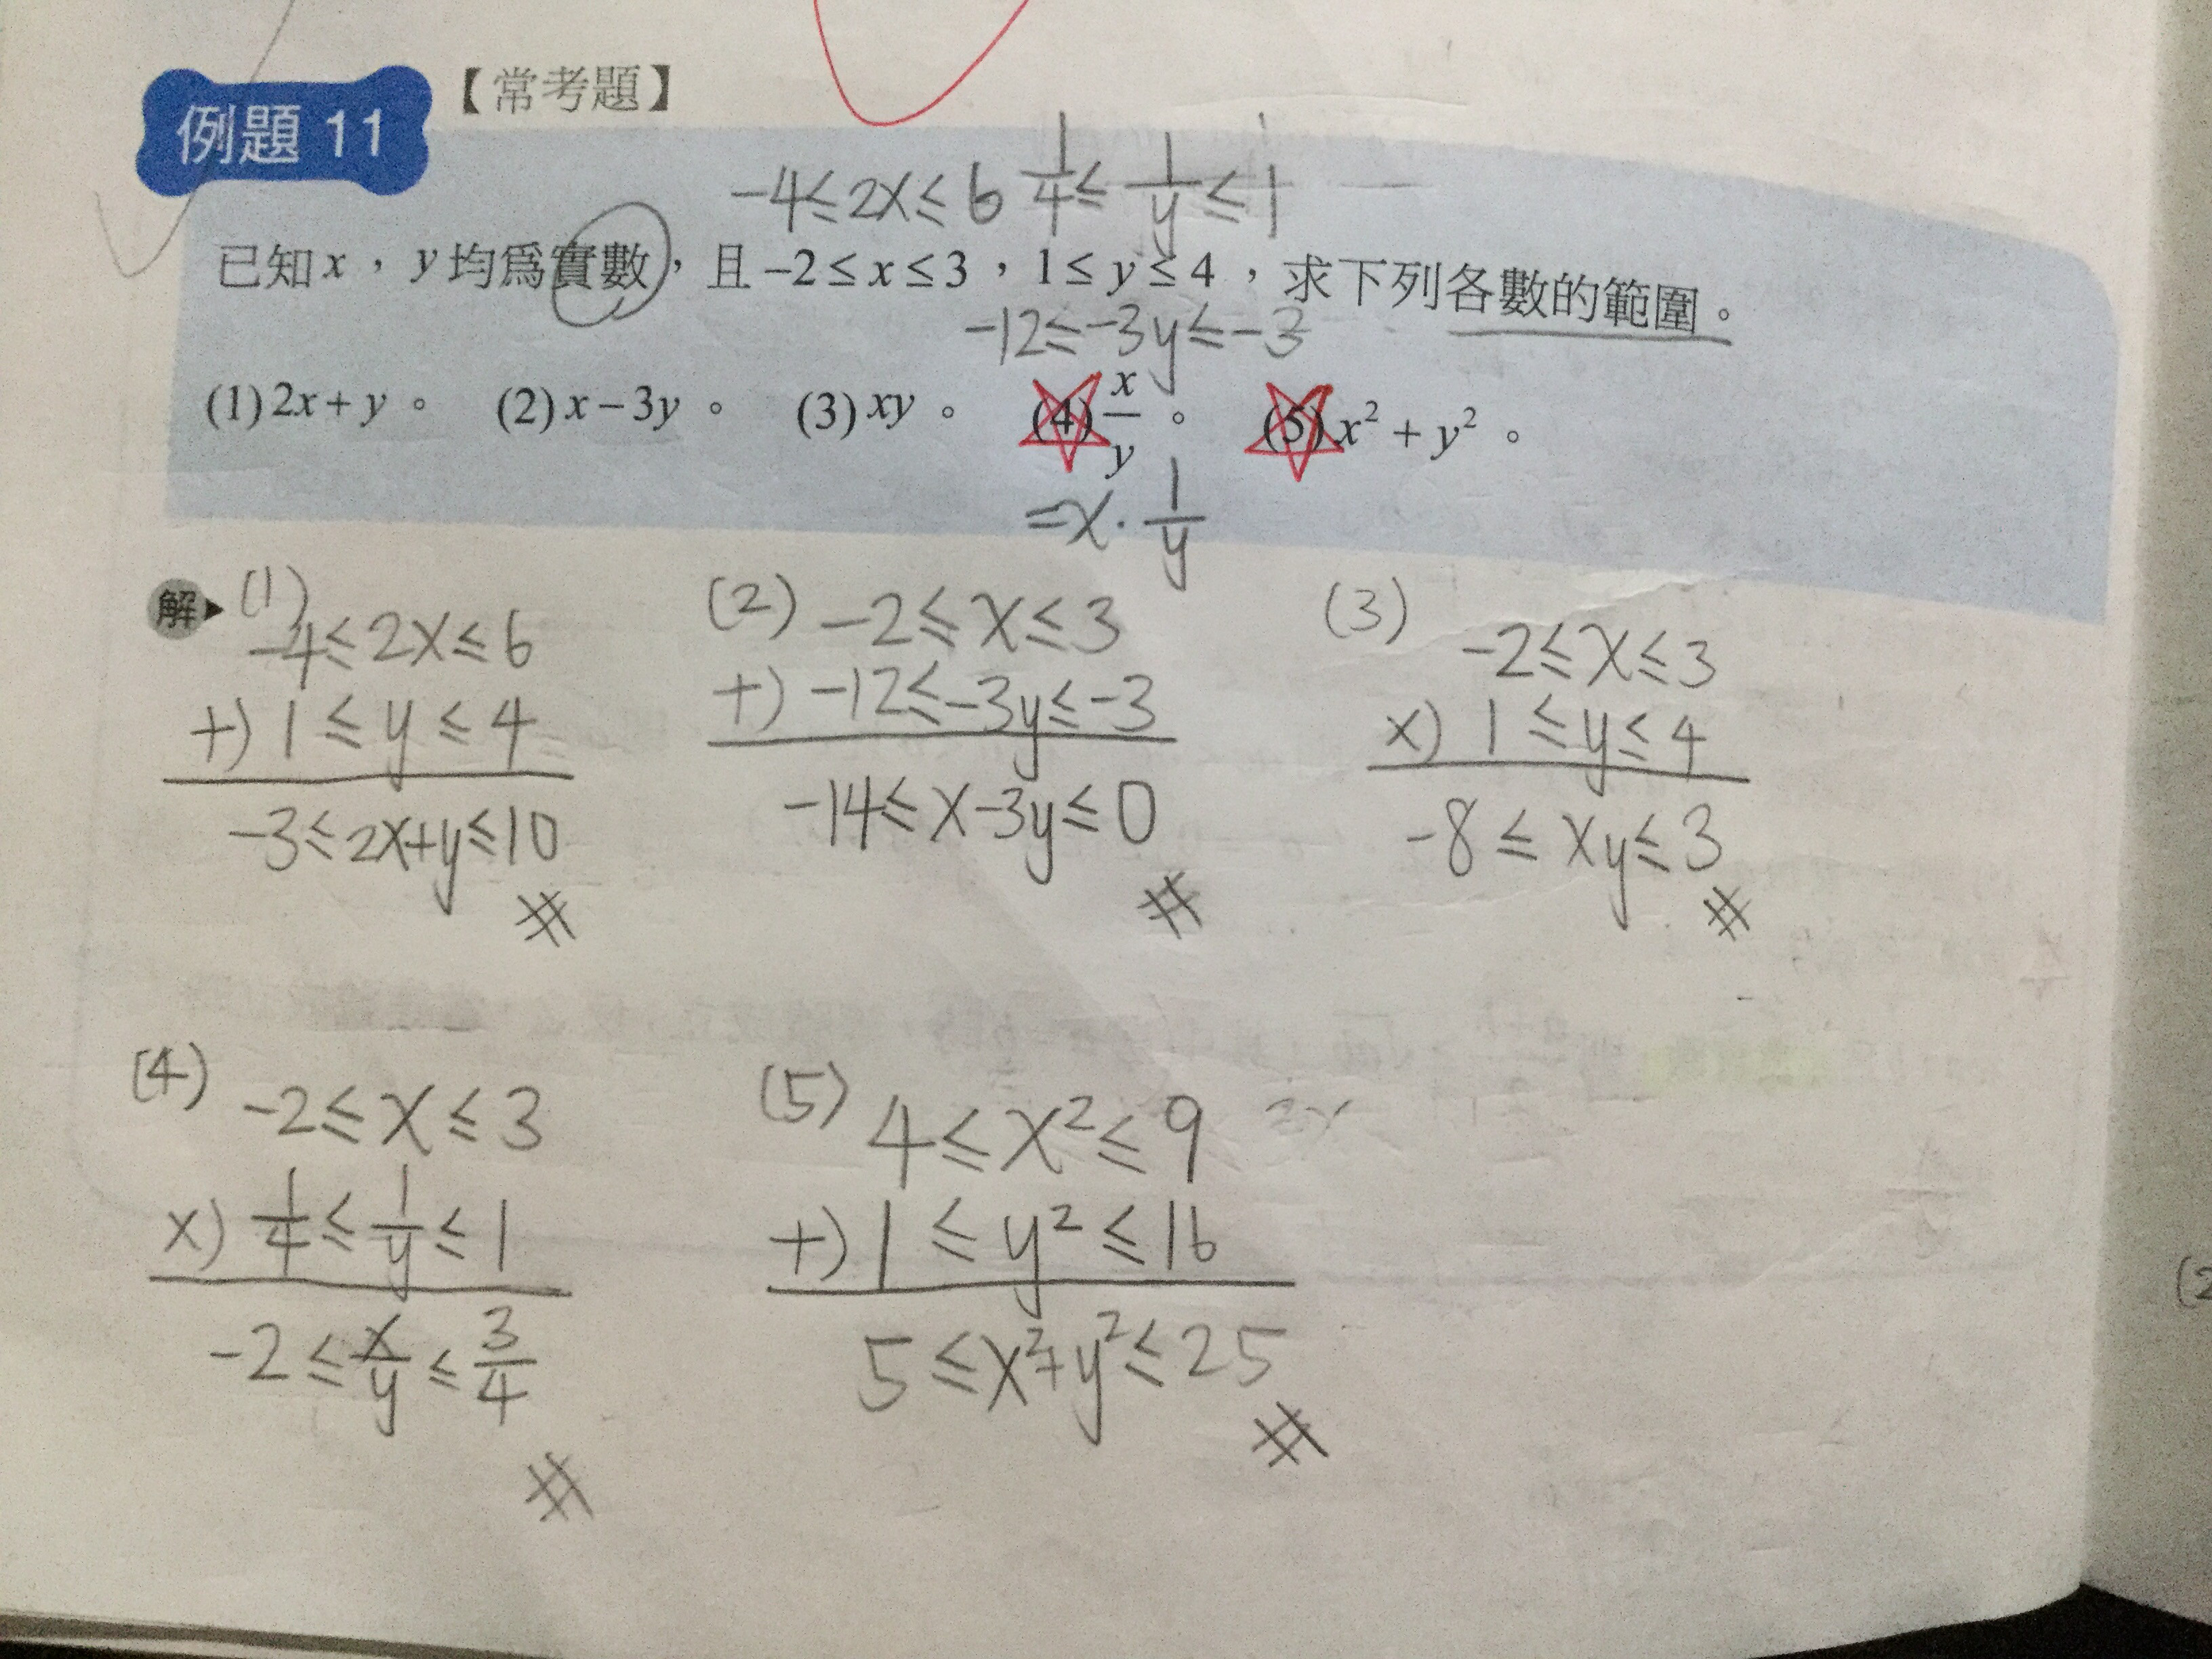 例題 11 【常考題】
-4≤2x≤6 1/4≤1/y≤1
已知x，y均為實數，且-2≤x≤3，1≤y≤4，求下列各數的範圍。
-12≤-3y≤-3
(1)2x+y。 (2)x-3y。 (3)xy。 (4)x/y。 (5)x²+y²。
=x·1/y
解▶(1)
-4≤2x≤6
+) 1≤y≤4
-3≤2x+y≤10
#
(2) -2≤x≤3
+) -12≤-3y≤-3
-14≤x-3y≤0
#
(3)
-2≤x≤3
x) 1≤y≤4
-8≤xy≤3
#
(4) -2≤x≤3
x) 1/4≤1/y≤1
-2≤x/y≤3/4
#
(5) 4≤x²≤9
+) 1≤y²≤16
5≤x²+y²≤25
#
(2